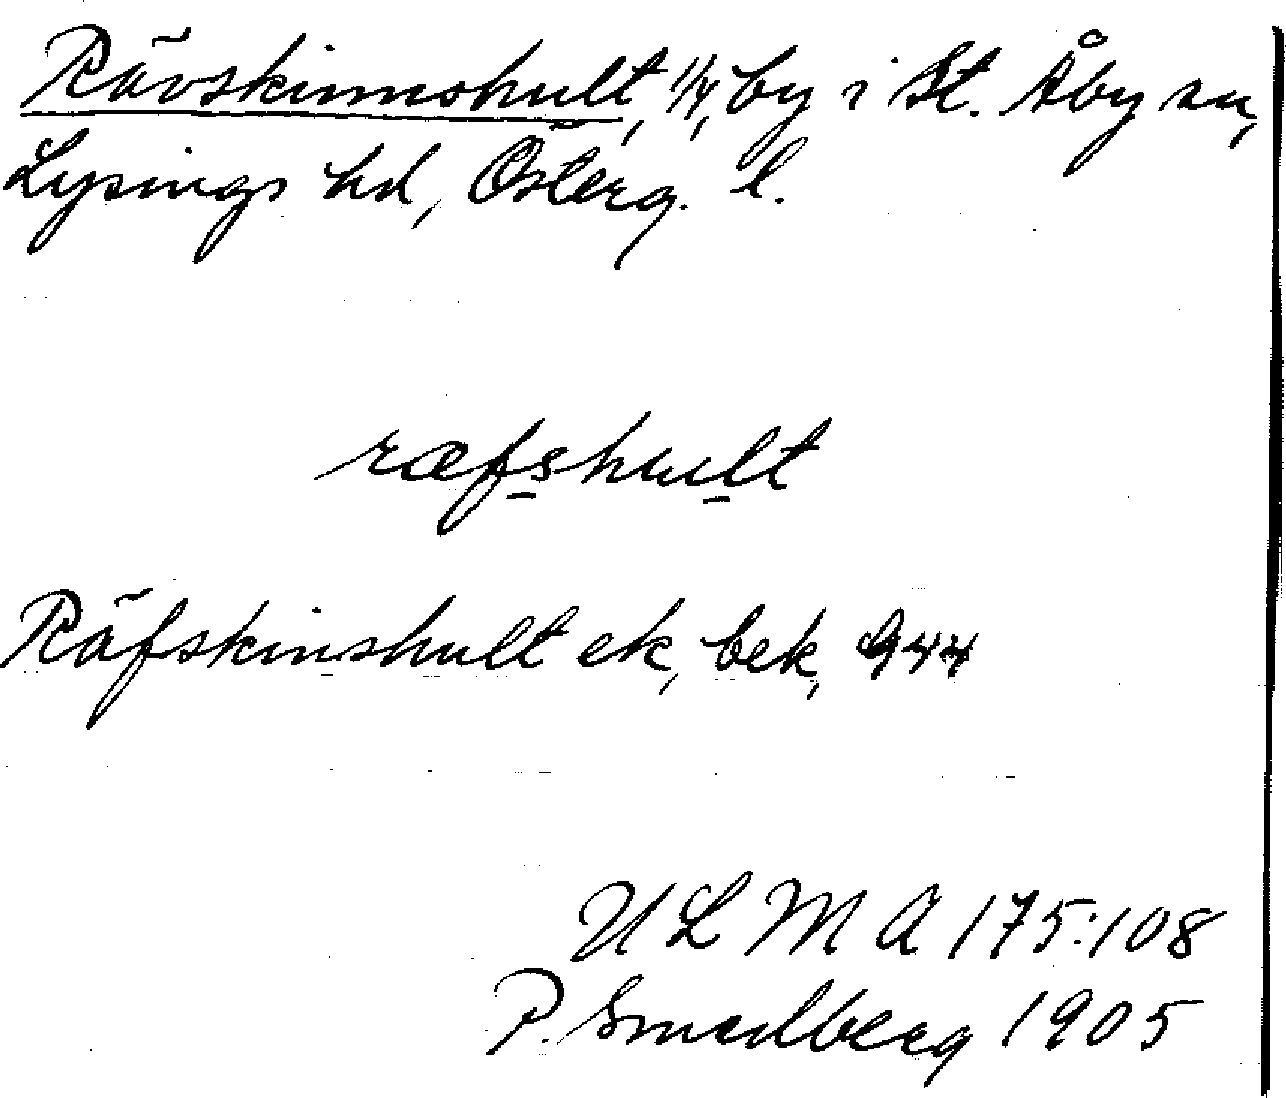 Rävskinnshult, 1/4, by i St. Åby sn,
Lysings hd, Österg. l.
ræfshult
Räfskinshult ek, bek, 944
U L M A 175:108
P. Smedberg 1905